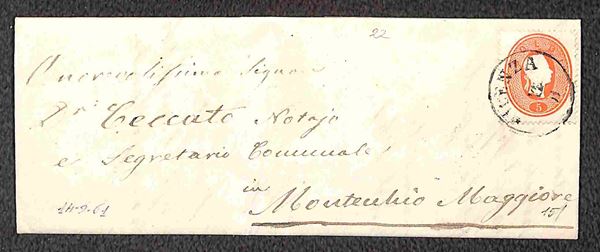 22
SOLDI
5
VICENZA
Onorevolissimo Signor
Dr. Ceccato Notajo
e Segretario Comunale
in
Montecchio Maggiore
14-9-61
15/